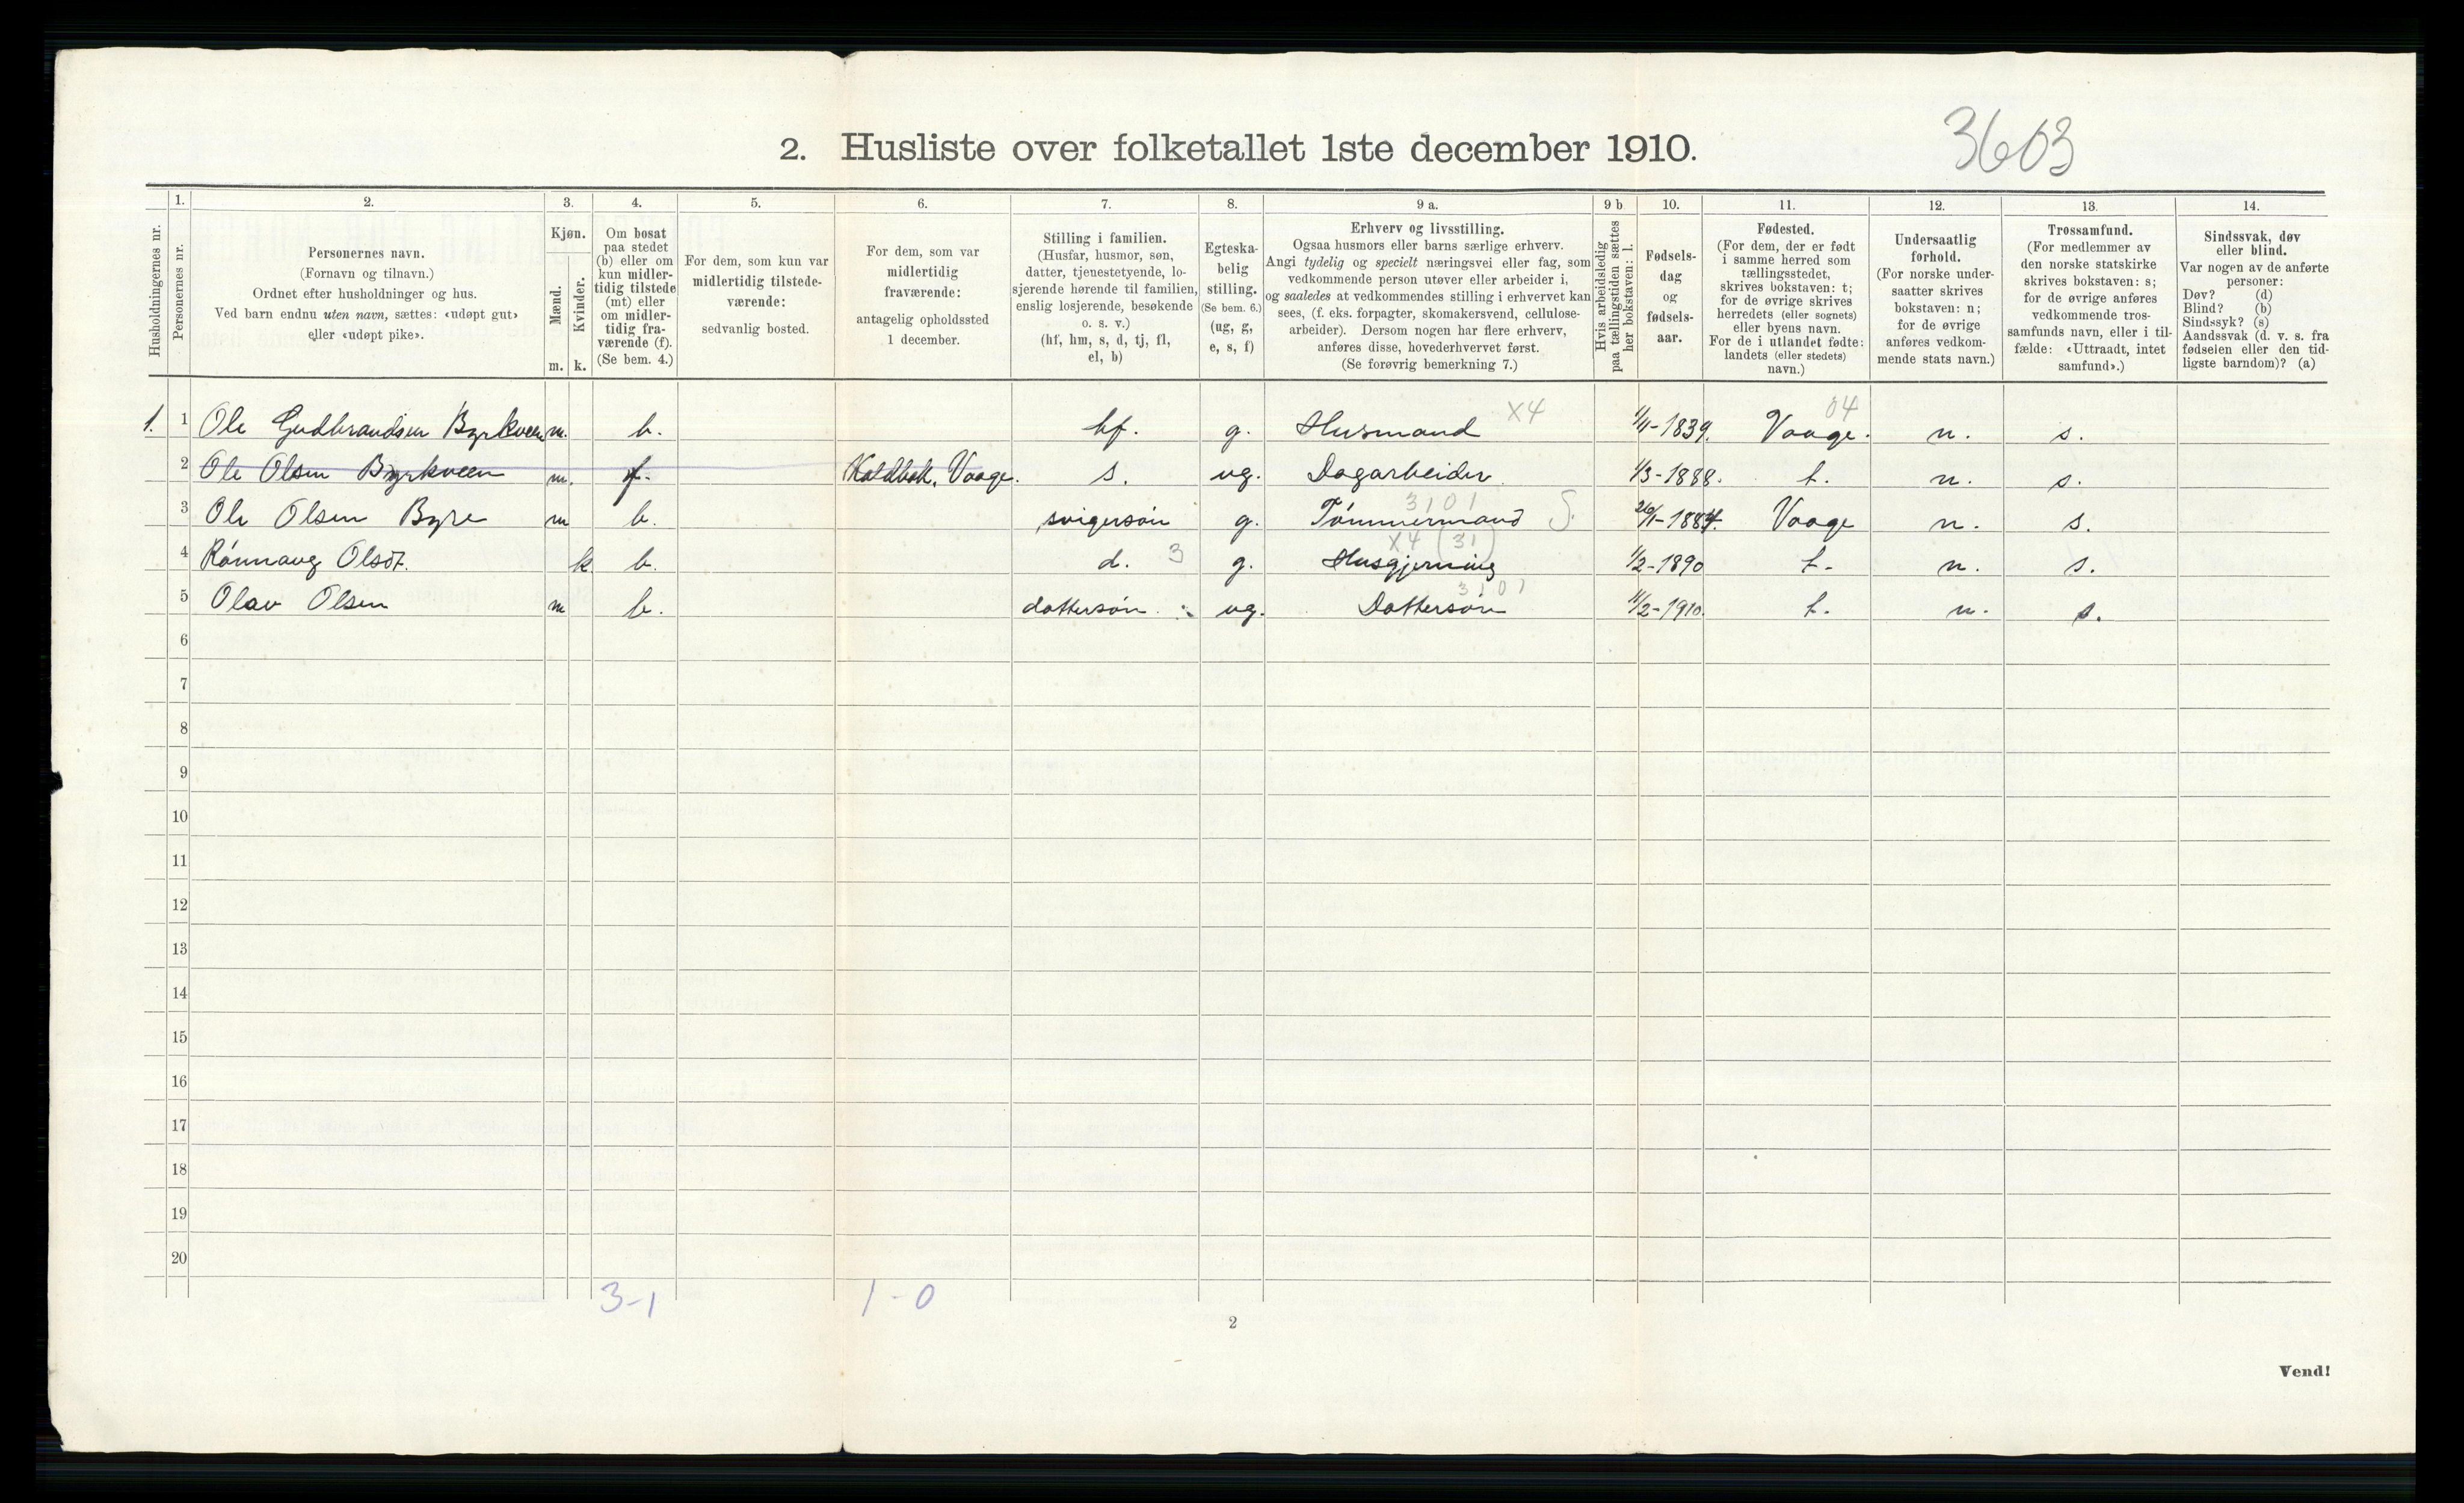 3603
2. Husliste over folketallet 1ste december 1910.
Husholdningernes nr.
1.
Personernes nr.
2.
Personernes navn.
(Fornavn og tilnavn.)
Ordnet efter husholdninger og hus.
Ved barn endnu uten navn, sættes: «udøpt gut»
eller «udøpt pike».
3.
Kjøn.
Mænd.
Kvinder.
m. k.
4.
Om bosat
paa stedet
(b) eller om
kun midler-
tidig tilstede
(mt) eller
om midler-
tidig fra-
værende (f).
(Se bem. 4.)
5.
For dem, som kun var
midlertidig tilstede-
værende:
sedvanlig bosted.
6.
For dem, som var
midlertidig
fraværende:
antagelig opholdssted
1 december.
7.
Stilling i familien.
(Husfar, husmor, søn,
datter, tjenestetyende, lo-
sjerende hørende til familien,
enslig losjerende, besøkende
o. s. v.)
(hf, hm, s, d, tj, fl,
el, b)
8.
Egteska-
belig
stilling.
(Se bem. 6.)
(ug, g,
e, s, f)
9 a.
Erhverv og livsstilling.
Ogsaa husmors eller barns særlige erhverv.
Angi tydelig og specielt næringsvei eller fag, som
vedkommende person utøver eller arbeider i,
og saaledes at vedkommendes stilling i erhvervet kan
sees, (f. eks. forpagter, skomakersvend, cellulose-
arbeider). Dersom nogen har flere erhverv,
anføres disse, hovederhvervet først.
(Se forøvrig bemerkning 7.)
9 b
Hvis arbeidsledig
paa tællingstiden sættes
her bokstaven: l.
10.
Fødsels-
dag
og
fødsels-
aar.
11.
Fødested.
(For dem, der er født
i samme herred som
tællingsstedet,
skrives bokstaven: t;
for de øvrige skrives
herredets (eller sognets)
eller byens navn.
For de i utlandet fødte:
landets (eller stedets)
navn.)
12.
Undersaatlig
forhold.
(For norske under-
saatter skrives
bokstaven: n;
for de øvrige
anføres vedkom-
mende stats navn.)
13.
Trossamfund.
(For medlemmer av
den norske statskirke
skrives bokstaven: s;
for de øvrige anføres
vedkommende tros-
samfunds navn, eller i til-
fælde: «Uttraadt, intet
samfund».)
14.
Sindssvak, døv
eller blind.
Var nogen av de anførte
personer:
Døv? (d)
Blind? (b)
Sindssyk? (s)
Aandssvak (d. v. s. fra
fødselen eller den tid-
ligste barndom)? (a)
X4 04
1. 1 Ole Gudbrandsen Byrkveen m. b. hf. g. Husmand 1/11-1839. Vaage. n. s.
2 Ole Olsen Byrkveen m. f. Kaldbek, Vaage. s. ug. Dagarbeider 1/3-1888. t. n. s.
3101
3 Ole Olsen Byre m b. svigersøn g. Tømmermand S. 26/1-1884. Vaage n. s.
X4 (31)
4 Rønnaug Olsdt. k b. d. 3 g. Husgjerning 1/2-1890 t. n. s.
3101
5 Olav Olsen m b. dattersøn ug. Dattersøn 11/2-1910. t. n. s.
6
7
8
9
10
11
12
13
14
15
16
17
18
19
20
3-1 1-0
2
Vend!